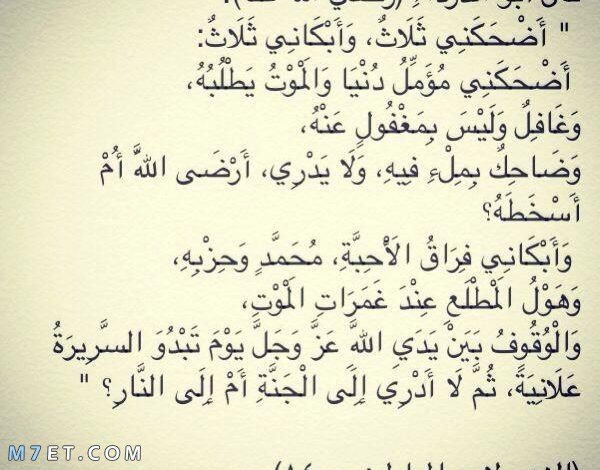 " أَضْحَكَنِي ثَلَاثٌ، وَأَبْكَانِي ثَلَاثٌ:
أَضْحَكَنِي مُؤَمِّلُ دُنْيَا وَالْمَوْتُ يَطْلُبُهُ،
وَغَافِلٌ وَلَيْسَ بِمَغْفُولٍ عَنْهُ،
وَضَاحِكٌ بِمِلْءِ فِيهِ، وَلَا يَدْرِي، أَرْضَى اللَّهَ أَمْ
أَسْخَطَهُ؟
وَأَبْكَانِي فِرَاقُ الْأَحِبَّةِ، مُحَمَّدٍ وَحِزْبِهِ،
وَهَوْلُ الْمَطْلَعِ عِنْدَ غَمَرَاتِ الْمَوْتِ،
وَالْوُقُوفُ بَيْنَ يَدَيِ اللَّهِ عَزَّ وَجَلَّ يَوْمَ تَبْدُوَ السَّرِيرَةُ
عَلَانِيَةً، ثُمَّ لَا أَدْرِي إِلَى الْجَنَّةِ أَمْ إِلَى النَّارِ؟ "
M7ET.COM